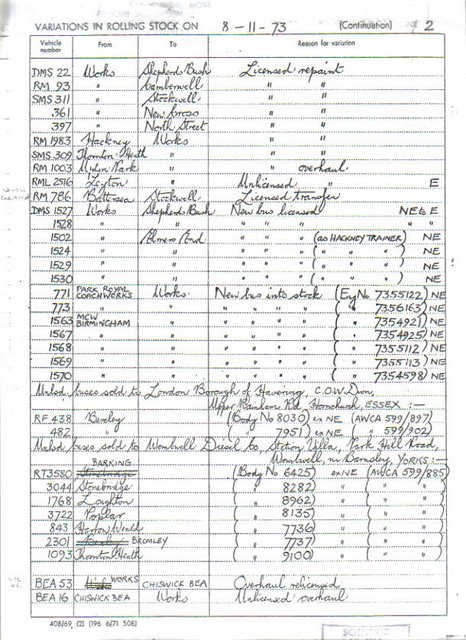 VARIATIONS IN ROLLING STOCK ON 8-11-73 (Continuation) 2
Vehicle number From To Reason for variation
DMS 22 Works Shepherds Bush Licensed repaint
RM 93 " Camberwell " "
SMS 311 " Stockwell " "
361 " New Cross " "
397 " North Street " "
RM 1983 Hackney Works " "
SMS 309 Thornton Heath " " "
RM 1003 Upton Park " " overhaul
RML 2516 Leyton " Unlicensed " E
RM 786 Battersea Stockwell Licensed transfer
DMS 1527 Works Shepherds Bush New bus licensed NE& E
1528 " " " " " " "
1502 " Palmers Green " " " (as HACKNEY TRAINER) NE
1524 " " " " " ( " " " ) NE
1529 " " " " " ( " " " ) NE
1530 " " " " " ( " " " ) NE
771 PARK ROYAL COACHWORKS Works New bus into stock (Eng No 7355122) NE
773 " " " " " " ( " 7356163) NE
1563 MCW BIRMINGHAM " " " " " ( " 7354921) NE
1567 " " " " " " ( " 7354925) NE
1568 " " " " " " ( " 7355112) NE
1569 " " " " " " ( " 7355113) NE
1570 " " " " " " ( " 7354598) NE
Unlsd buses sold to London Borough of Havering, C.O.W. Divn,
Upper Rainham Rd, Hornchurch, ESSEX :-
RF 438 Bexley (Body No 8030) ex NE (AWCA 599/897)
482 " ( " 7951) ex NE ( " 599/902)
Unlsd buses sold to Wombwell Diesel Co, Station Villa, Park Hill Road,
Wombwell, nr Barnsley, YORKS :-
RT3580 Stonebridge BARKING (Body No 6425) ex NE (AWCA 599/885)
3044 Stonebridge ( " 8282) " ( " " )
1768 Loughton ( " 8962) " ( " " )
3722 Poplar ( " 8135) " ( " " )
843 Harrow Weald ( " 7736) " ( " " )
2301 Bexley BROMLEY ( " 7737) " ( " " )
1093 Thornton Heath ( " 9100) " ( " " )
BEA 53 WORKS CHISWICK BEA Overhaul relicensed
BEA 16 CHISWICK BEA Works Unlicensed overhaul
408/69 (2) (196 6/71 508)